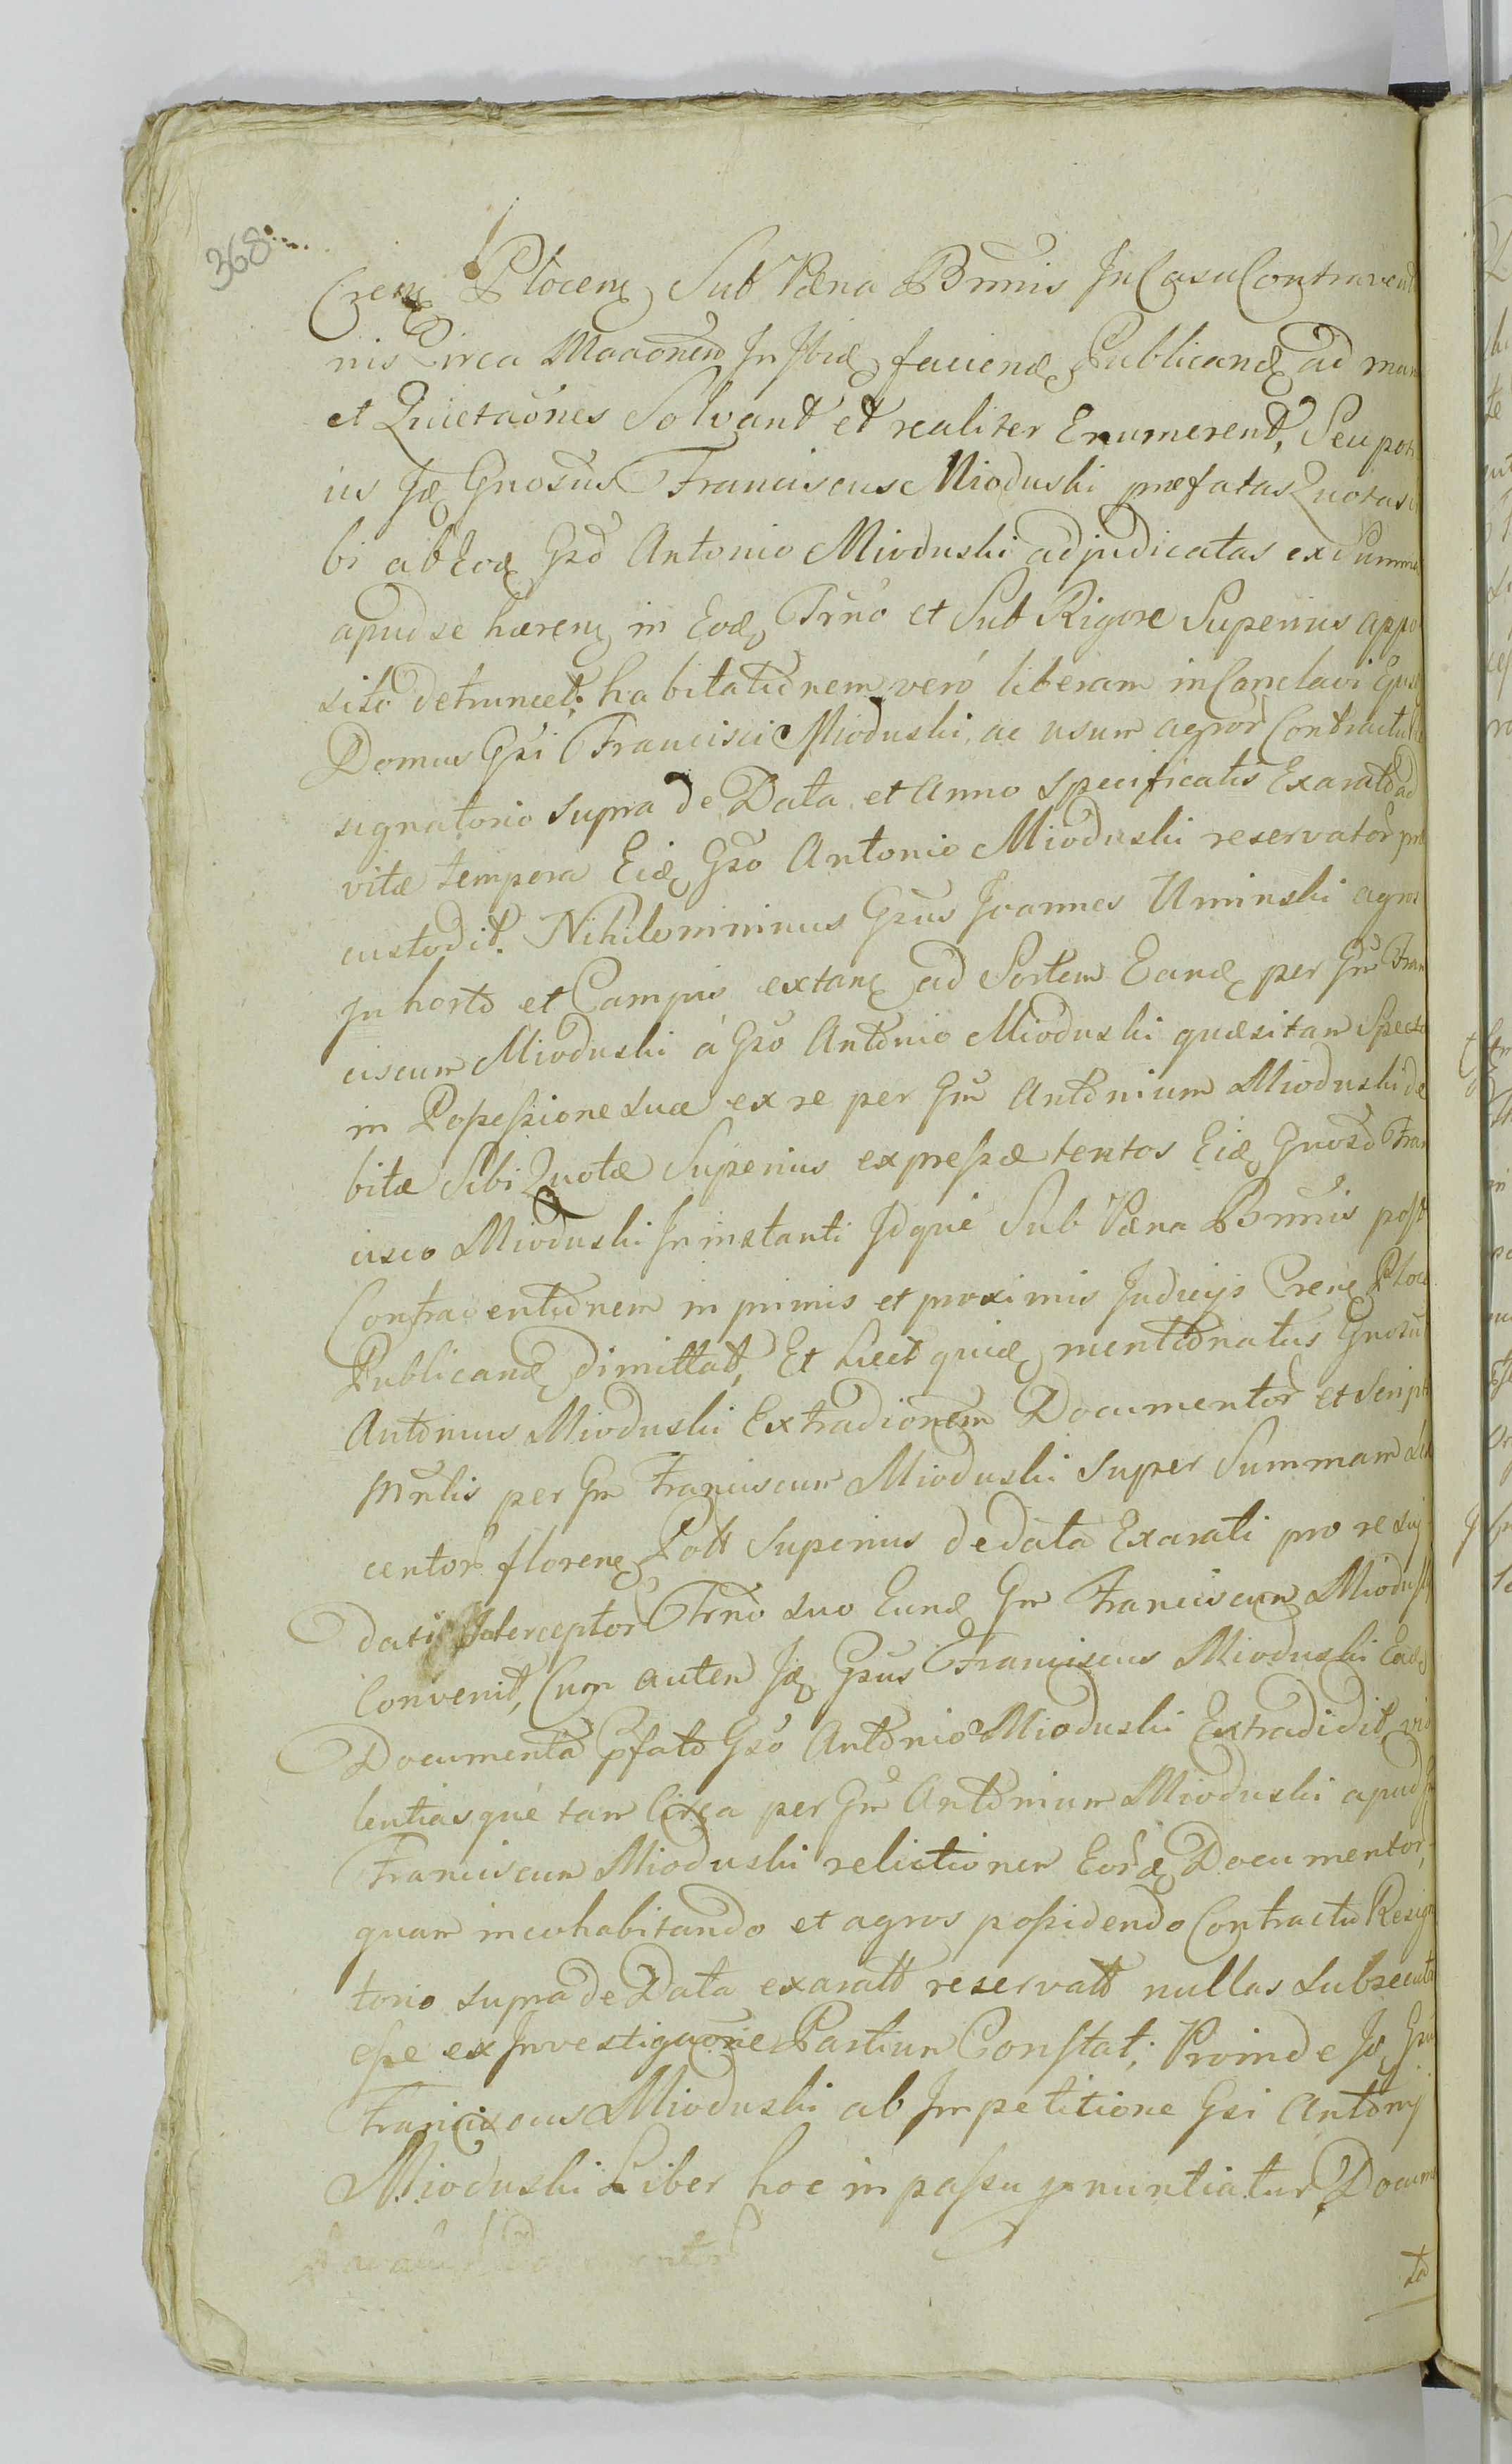 368
Crens Plocens Sub Pæna Bannis In Casu Contraventio
nis Circa Maaonem In Ibid faciend Publicand ad man
et Quietaones Solvant et realiter Enumerent, Seu pot
ius Id Gnosus Franciscus Mioduski præfatas Quotas si
bi ab Eod Gzo Antonio Mioduski adjudicatas ex Summa
apud se hærens in Eod Trno et Sub Rigore Superius appo
sito detruncet; habitationem vero liberam in Conclavi Ejusd
Domus Gzi Francisci Mioduski, ac usum agror Contractu
signatorio supra de Data et Anno specificatis Exarato ad
vitæ tempora Eid Gzo Antonio Mioduski reservator præ
custodit. Nihilominus Gzus Joannes Uminski agros
In horto et Campis extans ad Sortem Eand per Gm Fran
ciscum Mioduski á Gzo Antonio Mioduski quæsitam Specta
in Possessione sua ex re per Gm Antonium Mioduski de
bitæ Sibi Quotæ Superius expressæ tentos Eid Gnoso Fran
cisco Mioduski In instanti Idque Sub Pæna Bannis post
Contraventionem in primis et proximis Judicijs Crens Ploce
Publicand dimittat, Et licet quid mentionatus Gnosus
Antonius Mioduski Extradionem Documentor et Script
Mnlis per Gm Franciscum Mioduski super Summam
centor florens Poll Superius de data Exarati pro
datis Interceptor Trno suo Eund Gm Franciscum Miodusk
Convenit, Cum autem Id Gzus Franciscus Mioduski Ead
Documenta Pfato Gzo Antonio Mioduski Extradidit, vio
lentiasqué tam Circa per Gm Antonium Mioduski apud
Franciscum Mioduski relictionem Eord Documentor,
quam incohabitando et agros possidendo Contractu Resign
torio supra de Data exarato reservato nullas subsecuta
esse ex Investigaone Partium Constat; Proinde Id Gzus
Franciscus Mioduski ab Impetitione Gzi Antonij
Mioduski Liber hoc in passu pnuntiatur, Docum
ta